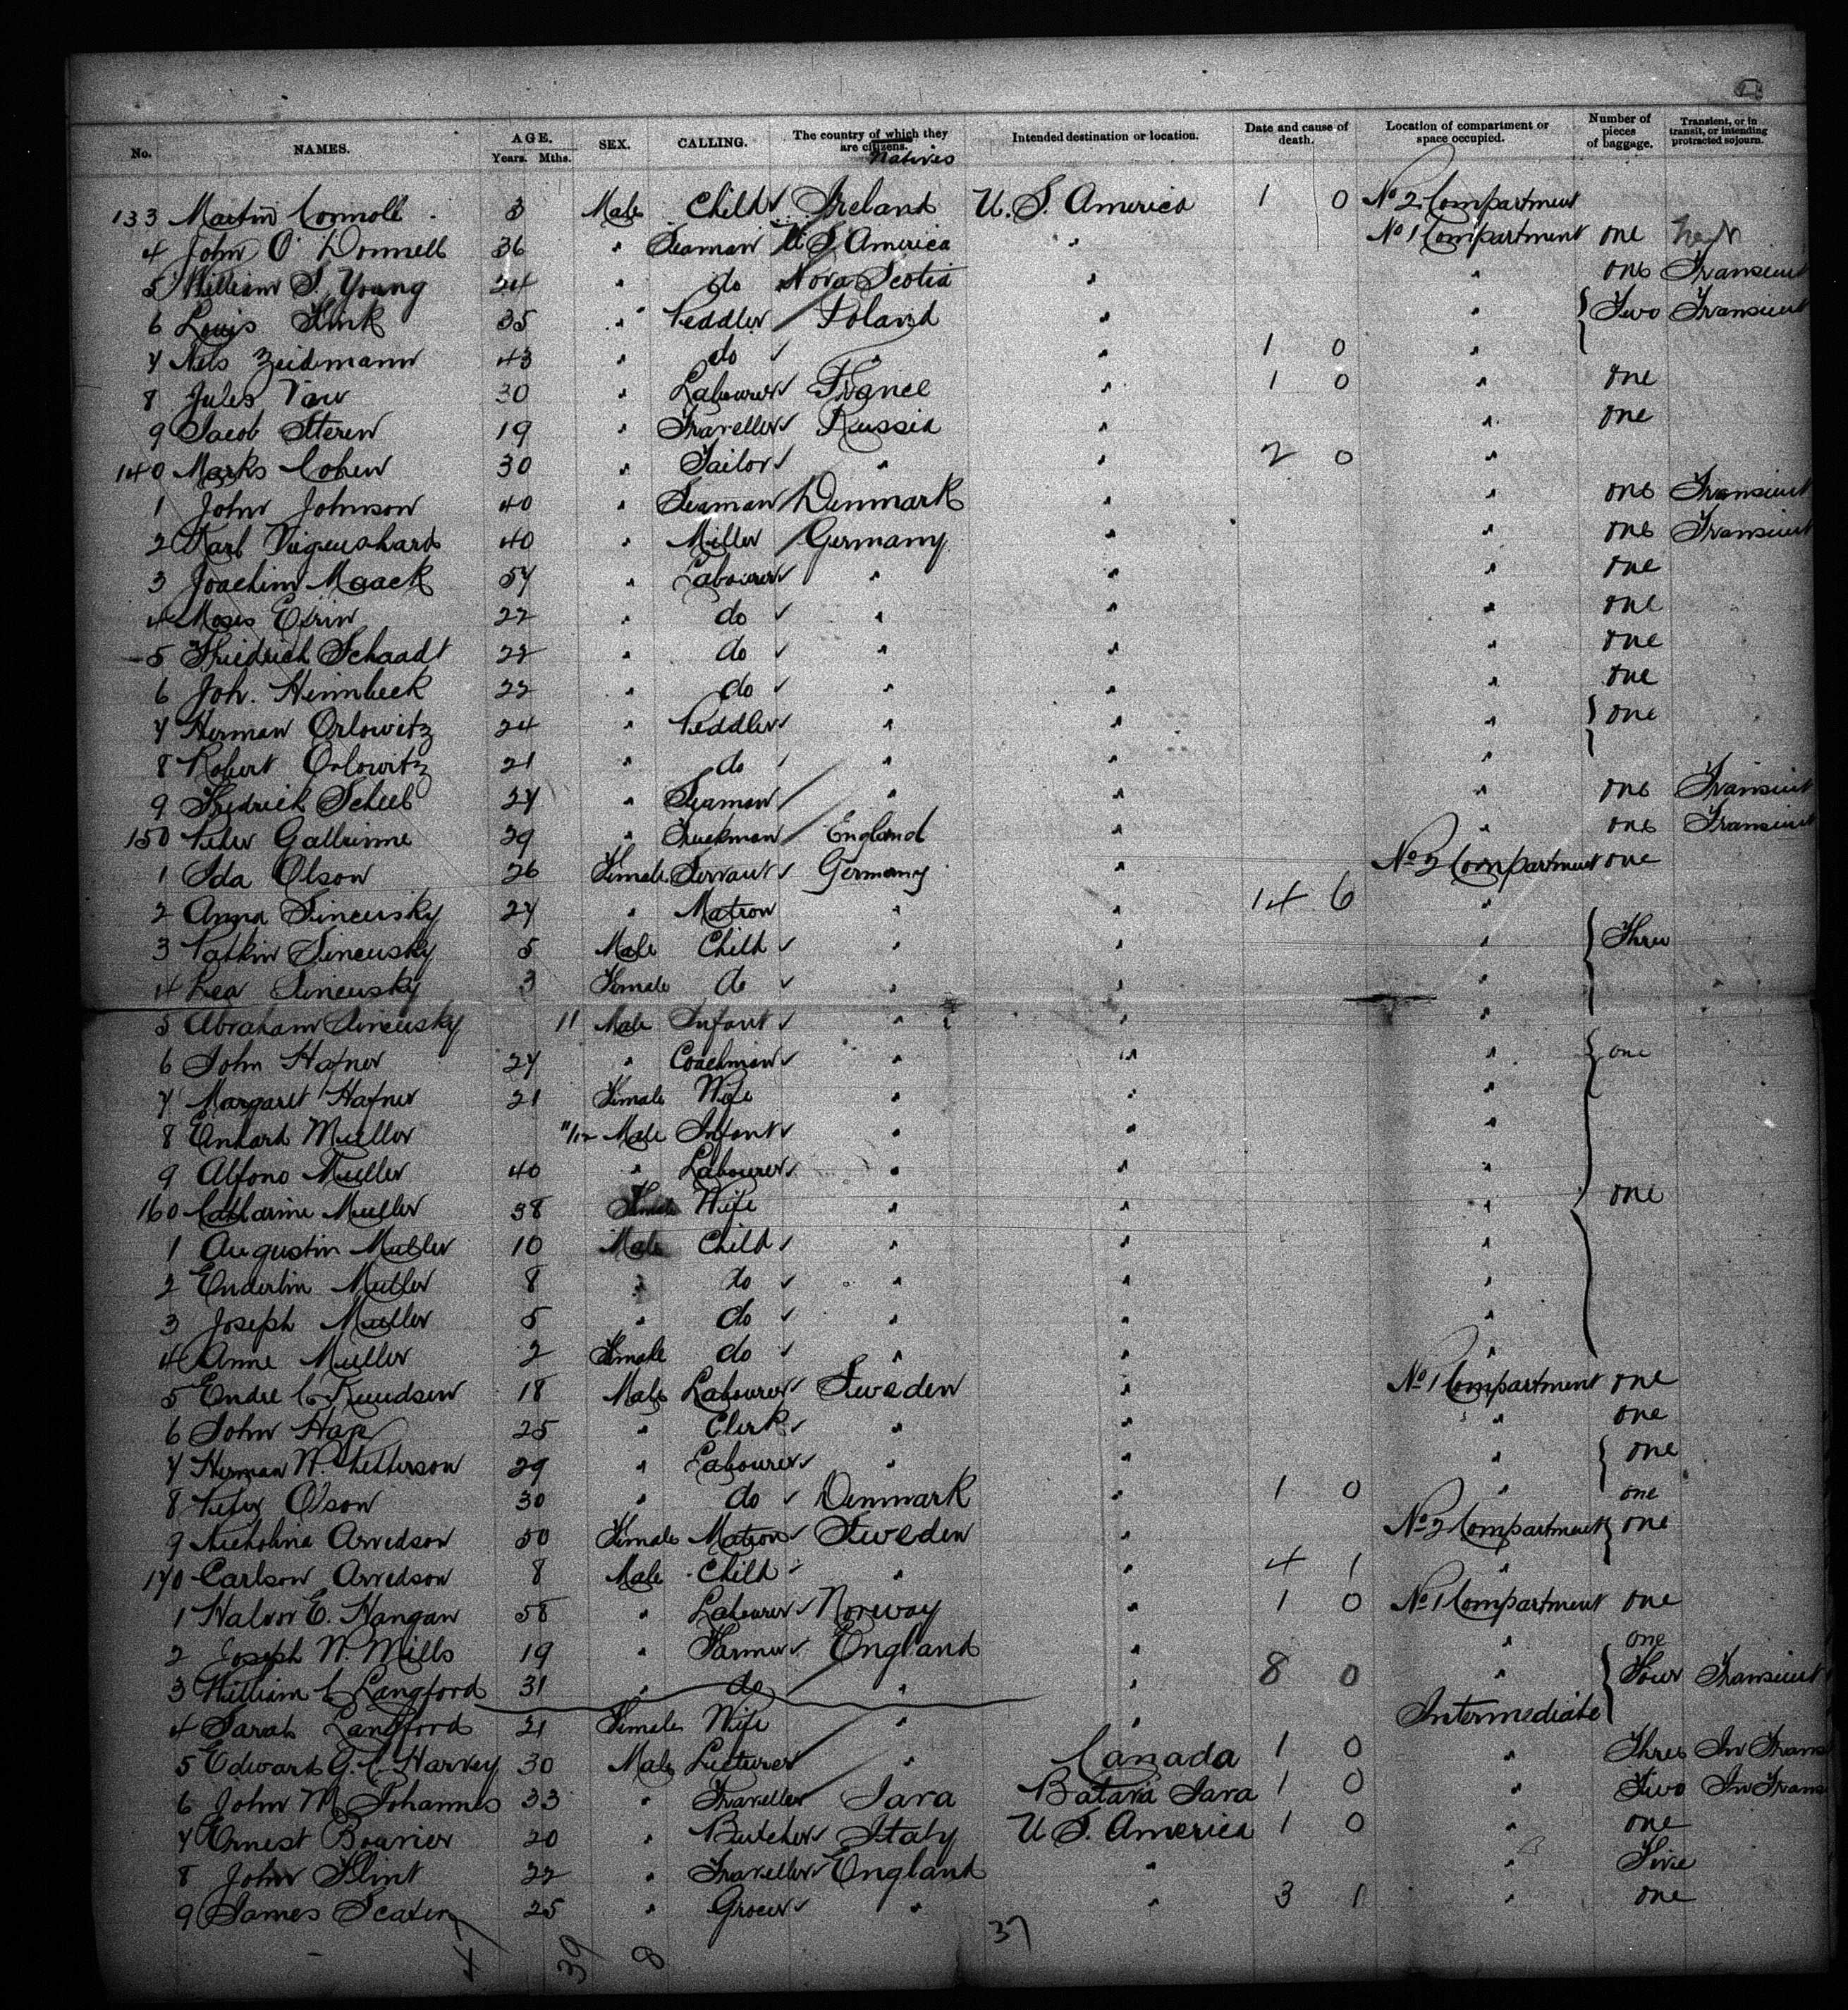 No. NAMES. AGE. Years. Mths. SEX. CALLING. The country of which they are citizens. Natives Intended destination or location. Date and cause of death. Location of compartment or space occupied. Number of pieces of baggage. Transient, or in transit, or intending protracted sojourn.
133 Martin Connoll 3 Male Child Ireland U.S. America 1 0 No 2 Compartment
4 John O'Donnell 36 " Seaman U.S. America " No 1 Compartment one
5 William S. Young 24 " do Nova Scotia " " one Transient
6 Louis Fink 35 " Peddler Poland " " Two Transient
7 Nels Zeidmann 43 " do " " 1 0 "
8 Jules 30 " Labourer France " 1 0 " one
9 Jacob Steren 19 " Traveller Russia " " one
140 Marks Cohen 30 " Tailor " " 2 0 "
1 John Johnson 40 " Seaman Denmark " " one Transient
2 Karl 40 " Miller Germany " " one Transient
3 Joachim Maack 57 " Labourer " " " one
4 Moses 22 " do " " " one
5 Friedrich Schaadt 22 " do " " " one
6 Joh. Heimbeck 22 " do " " " one
7 Herman Orlowitz 24 " Peddler " " " one
8 Robert Orlowitz 21 " do " " "
9 Fredrick Scheeb 27 " Seaman " " " one Transient
150 Peter 29 " Truckman England " " one Transient
1 Ida Olson 26 Female Servant Germany " No 2 Compartment one
2 Anna Sineusky 27 " Matron " " 14 6 "
3 Sineusky 5 Male Child " " " Three
4 Lea Sineusky 3 Female do " " "
5 Abraham Sineusky 11 Male Infant " " "
6 John Hafner 27 " Coachman " " " one
7 Margaret Hafner 21 Female Wife " " "
8 Muller 11/12 Male Infant " " "
9 Alfono Muller 40 " Labourer " " "
160 Catharine Muller 38 Female Wife " " " one
1 Augustin Muller 10 Male Child " " "
2 Enderlin Muller 8 " do " " "
3 Joseph Muller 5 " do " " "
4 Anne Muller 2 Female do " " "
5 Endre C. Knudsen 18 Male Labourer Sweden " No 1 Compartment one
6 John 25 " Clerk " " " one
7 Herman N. 29 " Labourer " " " one
8 Peter Olson 30 " do Denmark " 1 0 " one
9 Nicholina Arvedson 50 Female Matron Sweden " No 2 Compartment one
170 Carlson Arvedson 8 Male Child " " 4 1 "
1 Halvor E. Hangan 58 " Labourer Norway " 1 0 No 1 Compartment one
2 Joseph N. Mills 19 " Farmer England " " one
3 William C Langford 31 " do " " 8 0 " Four Transient
4 Sarah Langford 21 Female Wife " " Intermediate
5 Edward G. C. Harvey 30 Male Lecturer " Canada 1 0 " Three In Trans
6 John M. Johannes 33 " Traveller Java Batavia Java 1 0 " Two In Trans
7 Ernest 20 " Butcher Italy U S. America 1 0 " one
8 John Flint 22 " Traveller England " " Five
9 James 25 " Grocer " " 3 1 " one
47 39 8 37